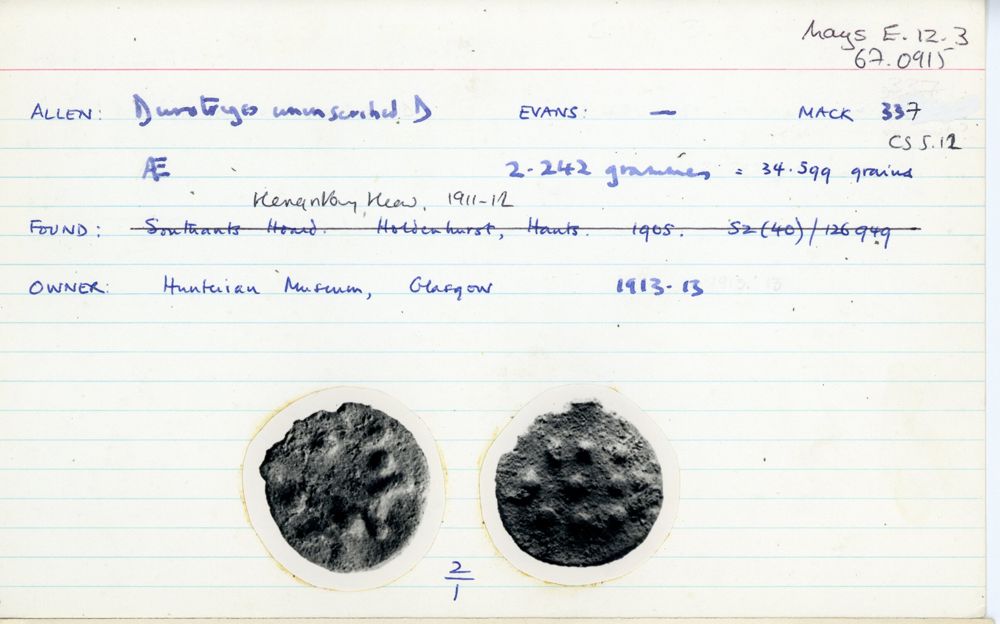 Mays E.12.3
67.0915
ALLEN: Durotriges uninscribed D EVANS: — MACK 337
CS 5.12
Æ 2.242 grammes = 34.599 grains
Hengistbury Head, 1911-12
FOUND: Southants Hoard. Holdenhurst, Hants. 1905. SZ (40)/126949
OWNER: Hunterian Museum, Glasgow 1913-13
2
1